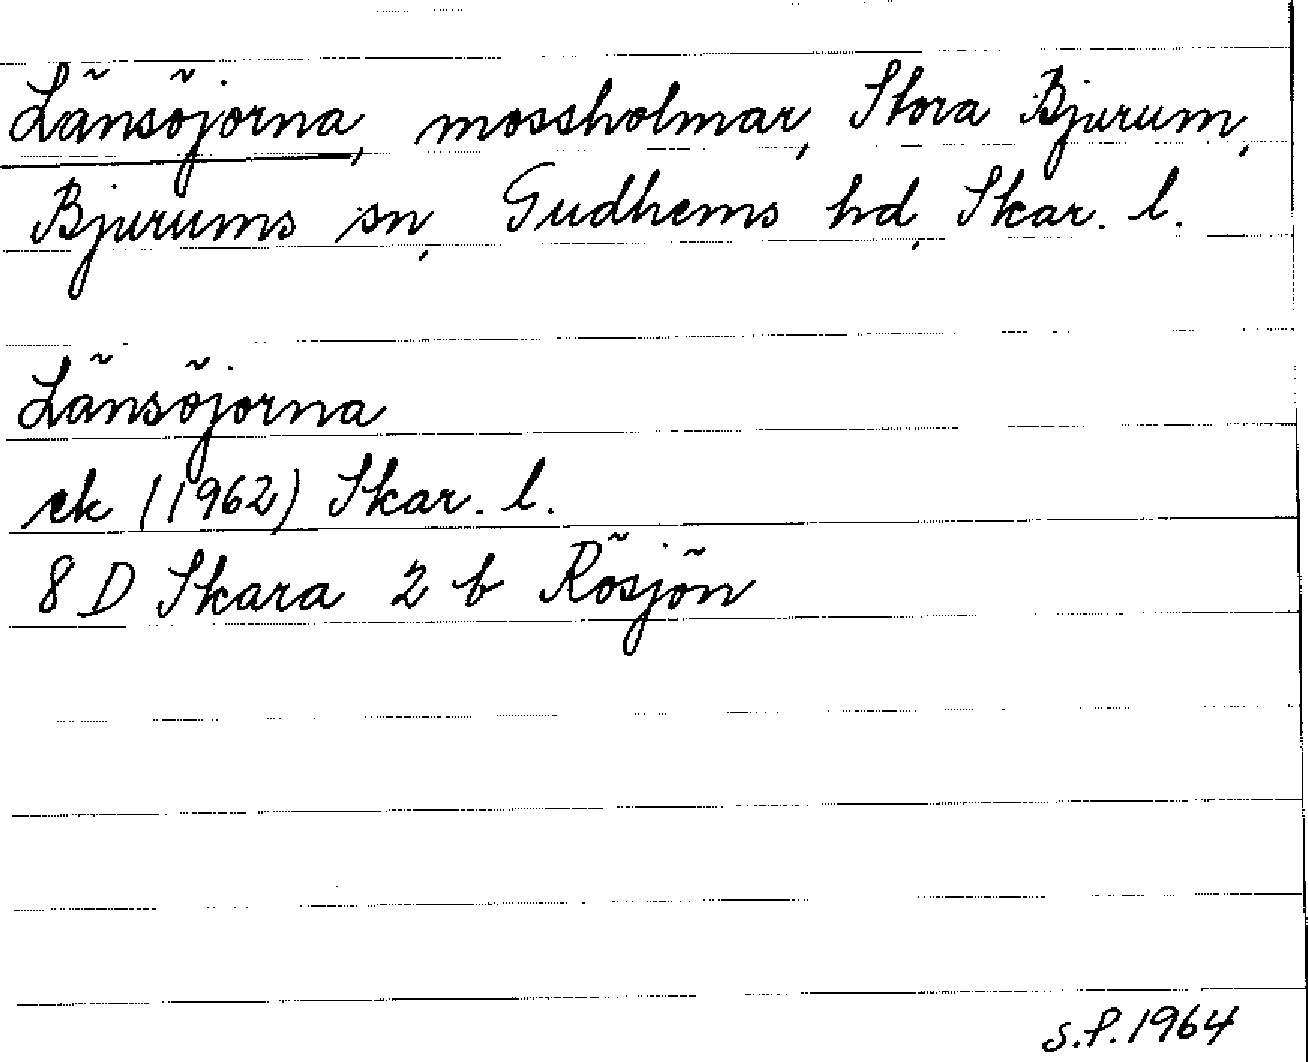 Länsöjorna, mossholmar, Stora Bjurum,
Bjurums sn, Gudhems hd, Skar. l.
Länsöjorna
ek (1962) Skar. l.
8 D Skara 2 b Rösjön
S.P. 1964